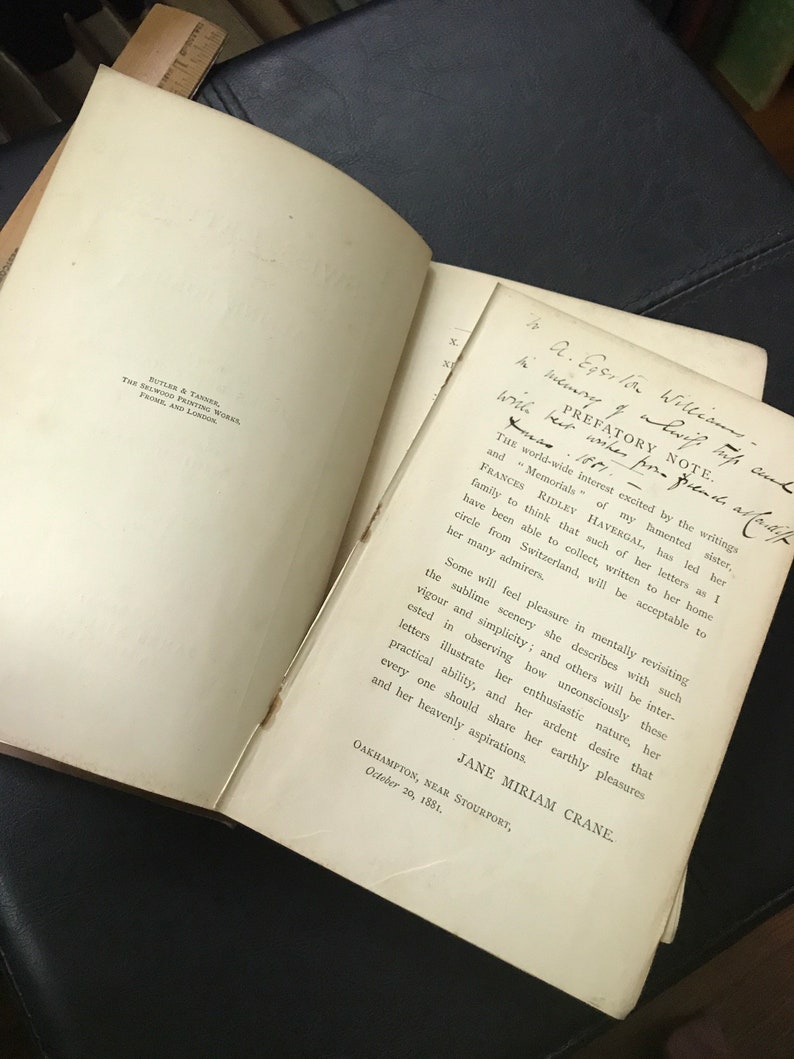 BUTLER & TANNER,
THE SELWOOD PRINTING WORKS,
FROME, AND LONDON.
X.
To
A. Egerton Williams –
in memory of a Swiss Trip and
with best wishes from friends at Cardiff
Xmas. 1881. –
PREFATORY NOTE.
THE world-wide interest excited by the writings
and “Memorials” of my lamented sister,
FRANCES RIDLEY HAVERGAL, has led her
family to think that such of her letters as I
have been able to collect, written to her home
circle from Switzerland, will be acceptable to
her many admirers.
Some will feel pleasure in mentally revisiting
the sublime scenery she describes with such
vigour and simplicity; and others will be inter-
ested in observing how unconsciously these
letters illustrate her enthusiastic nature, her
practical ability, and her ardent desire that
every one should share her earthly pleasures
and her heavenly aspirations.
JANE MIRIAM CRANE.
OAKHAMPTON, NEAR STOURPORT,
October 20, 1881.